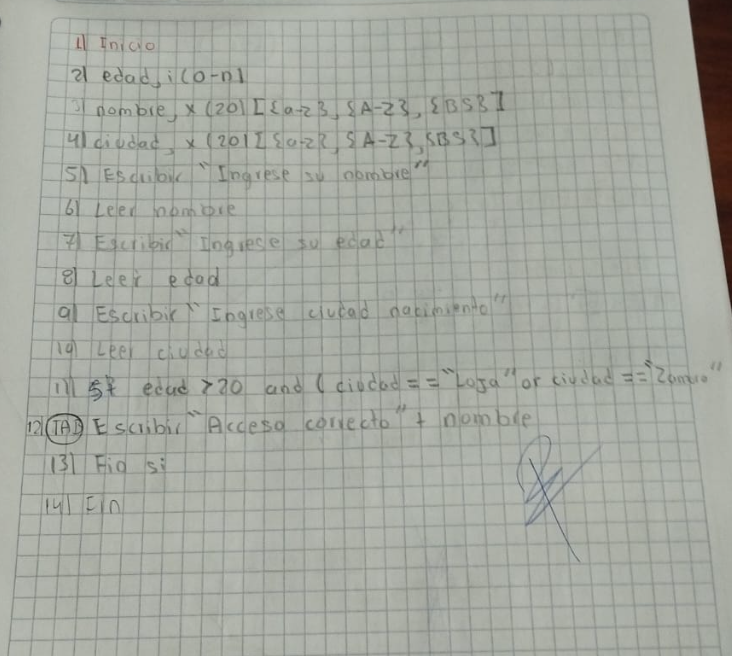 1) Inicio
2) edad, i (0-n)
3) nombre, x (20) [{a-z}, {A-Z}, {BS}]
4) ciudad, x (20) [{a-z}, {A-Z}, {BS}]
5) Escribir "Ingrese su nombre"
6) Leer nombre
7) Escribir "Ingrese su edad"
8) Leer edad
9) Escribir "Ingrese ciudad nacimiento"
10) Leer ciudad
11) Si edad > 20 and (ciudad == "Loja" or ciudad == "Zamora"
12) TAB Escribir "Acceso correcto" + nombre
13) Fin si
14) Fin